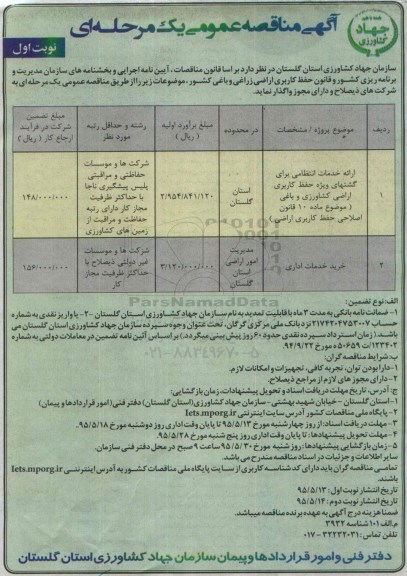 جهاد
کشاورزی
آگهی مناقصه عمومی یک مرحله ای
نوبت اول
سازمان جهاد کشاورزی استان گلستان در نظر دارد بر اساس قانون مناقصات ، آیین نامه اجرایی و بخشنامه های سازمان مدیریت و
برنامه ریزی کشور و قانون حفظ کاربری اراضی زراعی و باغی کشور ، موضوعات زیر را از طریق مناقصه عمومی یک مرحله ای به
شرکت های ذیصلاح و دارای مجوز واگذار نماید.
ردیف
موضوع پروژه / مشخصات
در محدوده
مبلغ برآورد اولیه ( ریال )
رشته و حداقل رتبه مورد نظر
مبلغ تضمین شرکت در فرآیند ارجاع کار ( ریال )
۱
ارائه خدمات انتظامی برای
گشتهای ویژه حفظ کاربری
اراضی کشاورزی و باغی
( موضوع ماده ۱۰ قانون
اصلاحی حفظ کاربری اراضی
استان گلستان
۲/۹۵۴/۸۴۱/۱۲۰
شرکت ها و موسسات
حفاظتی و مراقبتی
پلیس پیشگیری ناجا
با حداکثر ظرفیت
مجاز کار دارای رتبه
حفاظت و مراقبت از
زمین های کشاورزی
۱۴۸/۰۰۰/۰۰۰
۲
خرید خدمات اداری
مدیریت امور اراضی استان گلستان
۳/۱۲۰/۰۰۰/۰۰۰
شرکت ها و موسسات
غیر دولتی ذیصلاح با
حداکثر ظرفیت مجاز
کار
۱۵۶/۰۰۰/۰۰۰
ParsNamadData
۰۲۱-۸۸۳۴۹۶۷۰-۵
الف: نوع تضمین:
۱- ضمانت نامه بانکی به مدت ۳ ماه با قابلیت تمدید به نام سازمان جهاد کشاورزی استان گلستان ۲- یا واریز نقدی به شماره
حساب ۲۱۷۴۲۰۴۷۵۳۰۰۷ نزد بانک ملی مرکزی گرگان، تحت عنوان وجوه سپرده سازمان جهاد کشاورزی استان گلستان می
باشند. ( زمان استرداد سپرده نقدی حدود ۶۰ روز پیش بینی میگردد.) بر اساس آئین نامه تضمین در معاملات دولتی به شماره
۱۲۳۴۰۲/ت ۵۰۶۵۹ ه مورخ ۹۴/۹/۲۲
ب: شرایط مناقصه گران:
۱- دارا بودن توان، تجربه کافی، تجهیزات و امکانات لازم.
۲- دارای مجوز های لازم از مراجع ذیصلاح.
ج: آدرس ، تاریخ مهلت دریافت اسناد و تحویل پیشنهادات، زمان بازگشایی:
۱- استان گلستان - خیابان شهید بهشتی - سازمان جهاد کشاورزی (استان گلستان) دفتر فنی (امور قراردادها و پیمان)
۲- پایگاه ملی مناقصات کشور آدرس سایت اینترنتی Iets.mporg.ir
۳- مهلت دریافت اسناد: از روز چهارشنبه مورخ ۹۵/۵/۱۳ تا پایان وقت اداری روز دوشنبه مورخ ۹۵/۵/۱۸.
۴- مهلت تحویل پیشنهادها: تا پایان وقت اداری روز پنج شنبه مورخ ۹۵/۵/۲۸.
۵- زمان بازگشایی پیشنهادها: روز شنبه مورخ ۹۵/۵/۳۰ ساعت ۹ صبح در محل دفتر فنی سازمان.
سایر اطلاعات و جزئیات در اسناد مناقصه مندرج می باشد.
تمامی مناقصه گران باید دارای کد شناسه کاربری از سایت پایگاه ملی مناقصات کشور به آدرس اینترنتی Iets.mporg.ir
باشند.
تاریخ انتشار نوبت اول: ۹۵/۵/۱۳
تاریخ انتشار نوبت دوم: ۹۵/۵/۱۴
ضمنا هزینه درج آگهی به عهده برنده مناقصه میباشد.
م.الف ۱۰۱ شناسه ۳۹۳۲
تلفن تماس: ۳۲۲۳۲۰۳۱-۰۱۷
دفتر فنی و امور قراردادها و پیمان سازمان جهاد کشاورزی استان گلستان